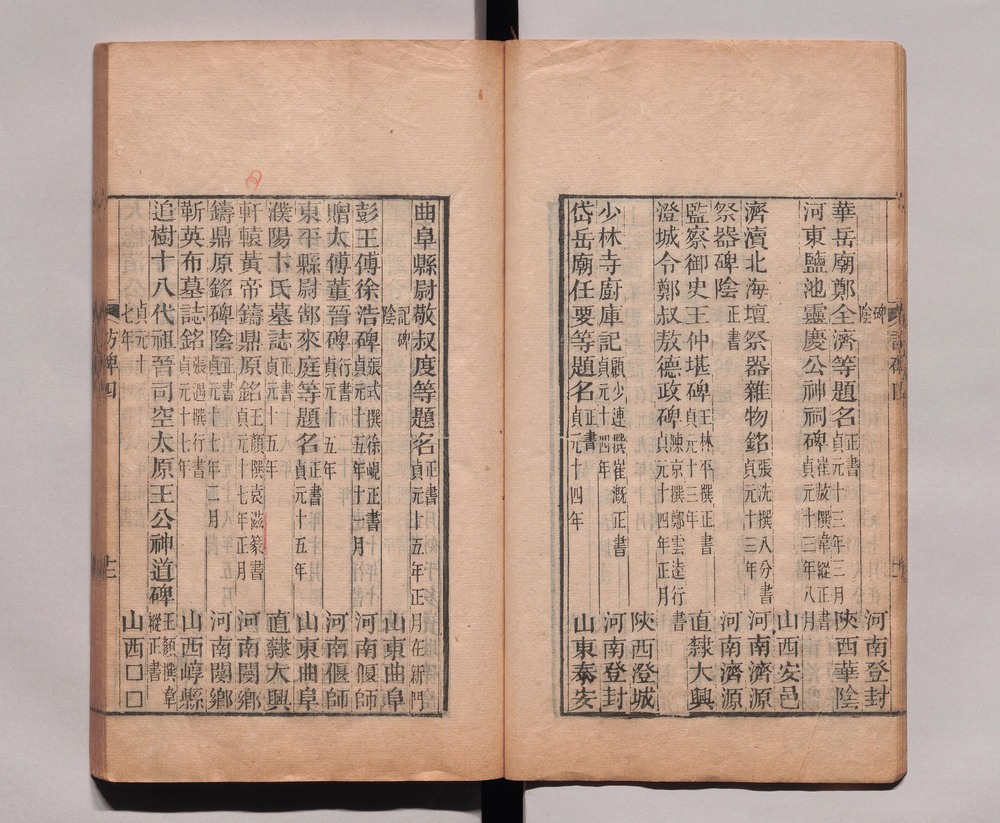 碑陰　河南登封
華岳廟鄭全濟等題名　正書　貞元十三年三月　陝西華陰
河東鹽池靈慶公神祠碑　崔敖撰韋縱正書　貞元十三年八月
山西安邑
濟瀆北海壇祭器雜物銘　張洗撰八分書　貞元十三年　河南濟源
祭器碑陰　正書　河南濟源
監察御史王仲堪碑　王林平撰正書　貞元十三年　直隸大興
澄城令鄭叔敖德政碑　陳京撰鄭雲逵行書　貞元十四年正月
陝西澄城
少林寺廚庫記　顧少連撰崔溉正書　貞元十四年　河南登封
岱岳廟任要等題名　正書　貞元十四年　山東泰安
曲阜縣尉敬叔度等題名　正書　貞元十五年正月在新門
記碑陰　山東曲阜
彭王傅徐浩碑　張式撰徐峴正書　貞元十五年十一月　河南偃師
贈太傅董晉碑　行書　貞元十五年　河南偃師
東平縣尉鄐來庭等題名　正書　貞元十五年　山東曲阜
濮陽卞氏墓誌　正書　貞元十五年　直隸大興
軒轅黃帝鑄鼎原銘　王顏撰袁滋篆書　貞元十七年正月　河南閺鄉
鑄鼎原銘碑陰　正書　貞元十七年二月　河南閺鄉
靳英布墓誌銘　張遇撰行書　貞元十七年　山西崞縣
追樹十八代祖晉司空太原王公神道碑　王顏撰韋縱正書
貞元十七年　山西□□
訪碑四　十二